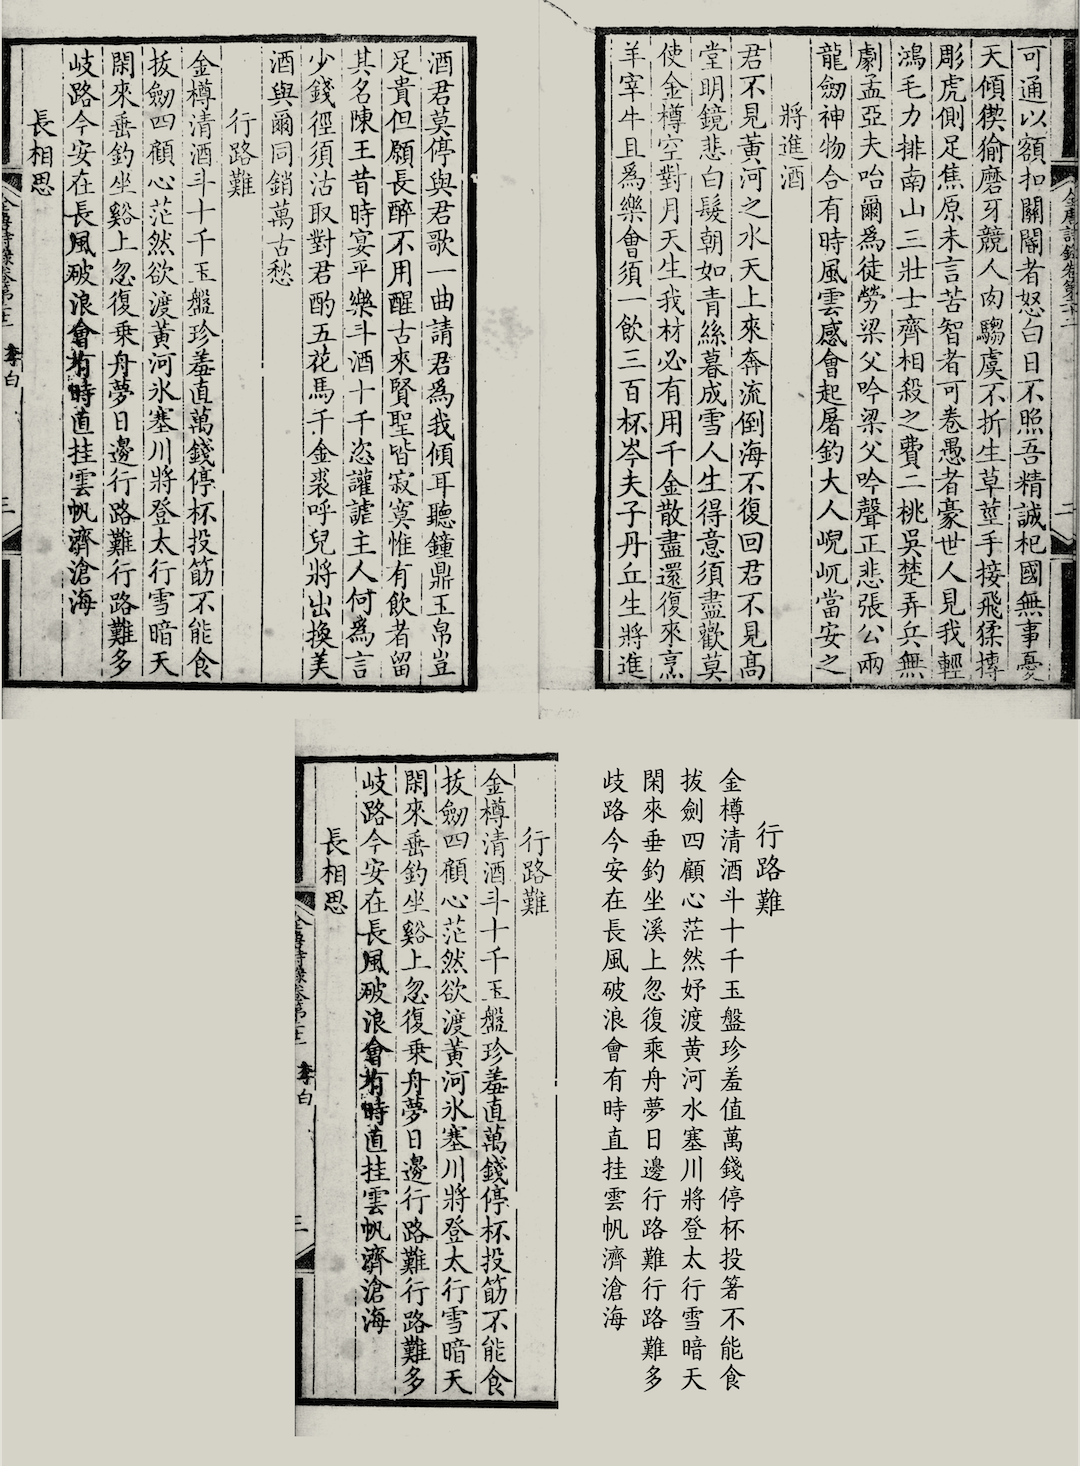 可通以額扣關閽者怒白日不照吾精誠杞國無事憂
天傾猰㺄磨牙競人肉騶虞不折生草莖手接飛猱搏
彫虎側足焦原未言苦智者可卷愚者豪世人見我輕
鴻毛力排南山三壯士齊相殺之費二桃吳楚弄兵無
劇孟亞夫咍爾爲徒勞梁父吟梁父吟聲正悲張公兩
龍劒神物合有時風雲感會起屠釣大人峴屼當安之
將進酒
君不見黃河之水天上來奔流倒海不復回君不見高
堂明鏡悲白髮朝如青絲暮成雪人生得意須盡歡莫
使金樽空對月天生我材必有用千金散盡還復來烹
羊宰牛且爲樂會須一飲三百杯岑夫子丹丘生將進
二
酒君莫停與君歌一曲請君爲我傾耳聽鐘鼎玉帛豈
足貴但願長醉不用醒古來賢聖皆寂寞惟有飲者留
其名陳王昔時宴平樂斗酒十千恣讙謔主人何爲言
少錢徑須沽取對君酌五花馬千金裘呼兒將出換美
酒與爾同銷萬古愁
行路難
金樽清酒斗十千玉盤珍羞直萬錢停杯投筯不能食
拔劒四顧心茫然欲渡黃河氷塞川將登太行雪暗天
閑來垂釣坐谿上忽復乗舟夢日邊行路難行路難多
歧路今安在長風破浪會有時直挂雲帆濟滄海
長相思
全唐詩錄卷第 李白 三
行路難
金樽清酒斗十千玉盤珍羞值萬錢停杯投箸不能食
拔劍四顧心茫然妤渡黃河水塞川將登太行雪暗天
閑來垂釣坐溪上忽復乘舟夢日邊行路難行路難多
歧路今安在長風破浪會有時直挂雲帆濟滄海
行路難
金樽清酒斗十千玉盤珍羞直萬錢停杯投筯不能食
拔劒四顧心茫然欲渡黃河氷塞川將登太行雪暗天
閑來垂釣坐谿上忽復乗舟夢日邊行路難行路難多
歧路今安在長風破浪會有時直挂雲帆濟滄海
長相思
全唐詩錄卷第 李白 三